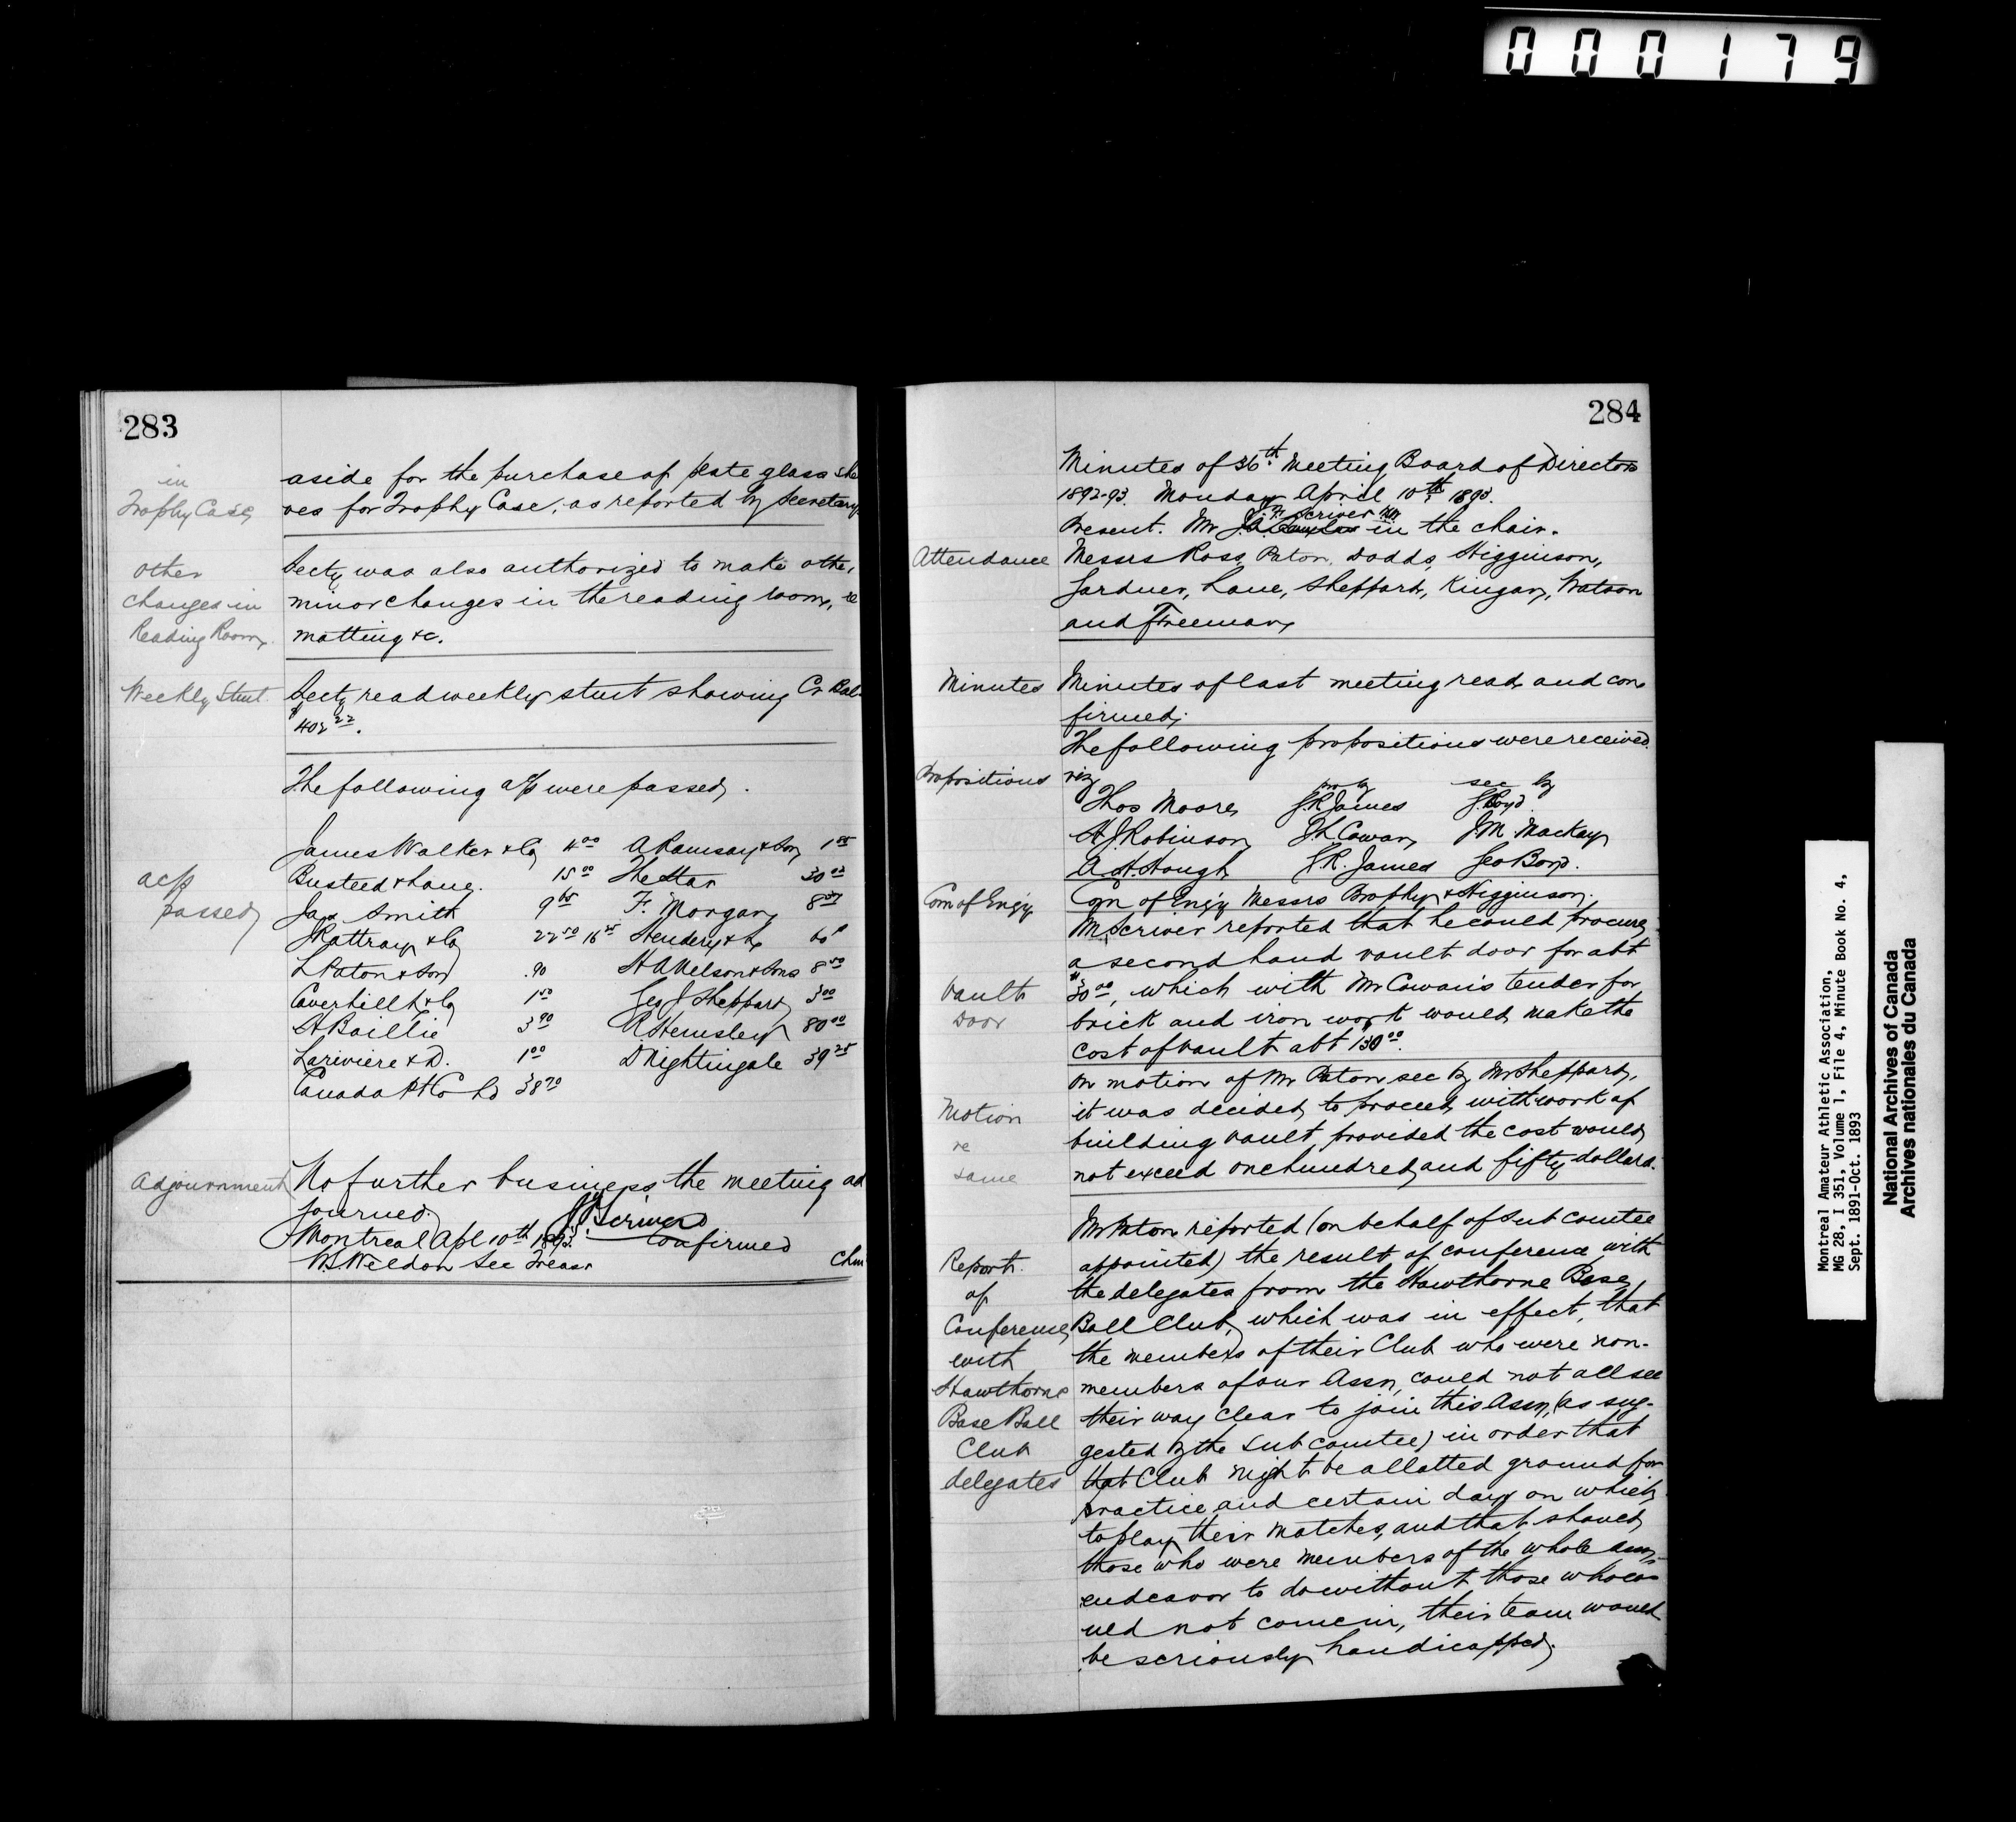 000179
283
in
Trophy Case
aside for the purchase of plate glass shel
ves for Trophy Case, as reported by Secretary
other
changes in
Reading Room
Secty was also authorized to make other
minor changes in the reading room, re
matting &c.
Weekly Stmt
Secty read weekly stmt showing Cr Bal
$402 22.
The following a/c were passed.
a/cs
passed
James Walker & Co 4 00 A Ramsay & Son 1 85
Busteed & Lane. 15 00 The Star 30 03
Jas Smith 9 65 F. Morgan
J Rattray & Co 22 50 16 25 Hendery & Co
L Paton & Son .90 H A Nelson & Sons 8 50
Caverhill & Co 1 50 Geo J Sheppard 3 00
H Baillie 3 90 R Hemsley 80 00
Lariviere & D. 1 00 D Nightingale 39 25
Canada Co Ld 38 70
Adjournment
No further business, the meeting ad
journed
Montreal Apl 10th 1893. Scriver
Confirmed
W. Weldon Sec Treasr Chm
284
Minutes of 36th Meeting Board of Directors
1892-93. Monday April 10th 1893.
Present. Mr J. F. Scriver in the chair.
Attendance
Messrs Ross, Paton, Dodds, Higginson,
Gardner, Lane, Sheppard, Kingan, Watson
and Freeman
Minutes
Minutes of last meeting read and con
firmed.
The following propositions were received
Propositions
viz
pro by sec by
Thos Moore J.R James G. Boyd
H J Robinson J L Cowan J M Mackay
A. H. Hough J. R. James Geo Boyd.
Com of Enqy
Com of Enqy Messrs Brophy & Higginson.
Mr Scriver reported that he could procure
a second hand vault door for abt
Vault
Door
$30 00, which with Mr Cowan's tender for
brick and iron work would make the
cost of vault abt 130 00.
Motion
re
same
On motion of Mr Paton sec by Mr Sheppard,
it was decided to proceed with work of
building vault, provided the cost would
not exceed one hundred and fifty dollars.
Report
of
Conference
with
Hawthorne
Base Ball
Club
delegates
Mr Paton reported (on behalf of Sub comtee
appointed) the result of conference with
the delegates from the Hawthorne Base
Ball Club, which was in effect, that
the members of their Club who were non-
members of our Assn, could not all see
their way clear to join this Assn, (as sug-
gested by the Sub comtee) in order that
that Club might be allotted ground for
practice and certain days on which
to play their matches, and that should
those who were members of the whole assn
endeavor to do without those who co
uld not come in, their team would
be seriously handicapped.
Montreal Amateur Athletic Association,
MG 28, I 351, Volume 1, File 4, Minute Book No. 4,
Sept. 1891-Oct. 1893
National Archives of Canada
Archives nationales du Canada